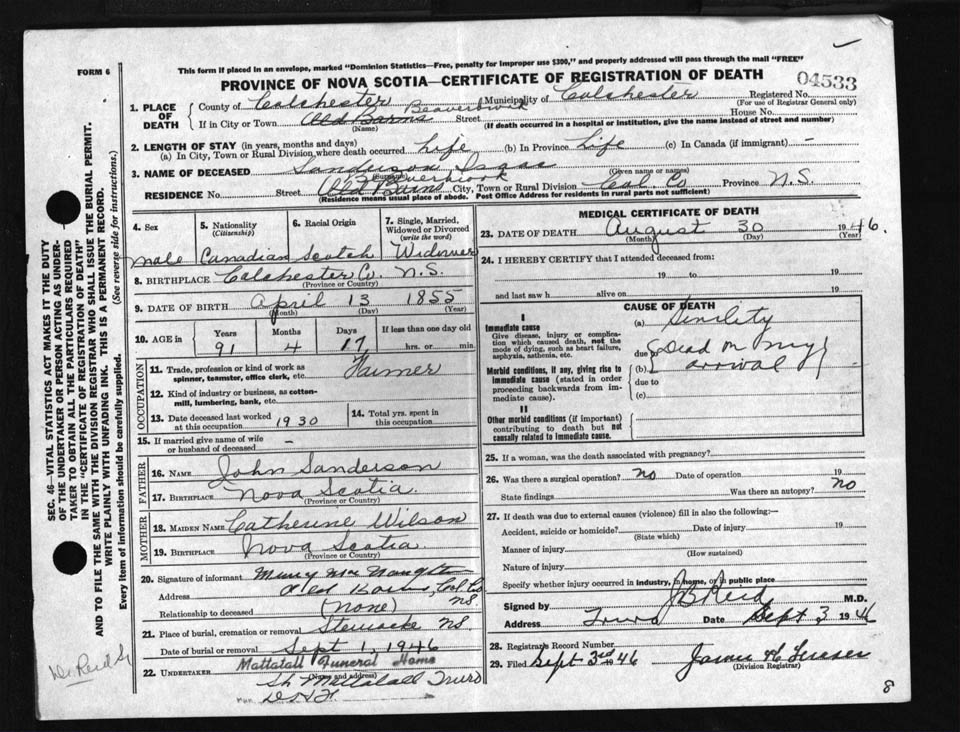 FORM 6
This form if placed in an envelope, marked "Dominion Statistics—Free, penalty for improper use $300," and properly addressed will pass through the mail "FREE"
PROVINCE OF NOVA SCOTIA—CERTIFICATE OF REGISTRATION OF DEATH
04533
1. PLACE OF DEATH
County of Colchester Municipality of Colchester Registered No.
(For use of Registrar General only)
Beaverbrook
If in City or Town Old Barns Street House No.
(Name) (If death occurred in a hospital or institution, give the name instead of street and number)
2. LENGTH OF STAY (in years, months and days)
(a) In City, Town or Rural Division where death occurred Life (b) In Province Life (c) In Canada (if immigrant) -
3. NAME OF DECEASED Sanderson, Isaac
(Surname) (Given name or names)
Beaverbrook
RESIDENCE No. Street Old Barns City, Town or Rural Division Col. Co Province N.S.
(Residence means usual place of abode. Post Office Address for residents in rural parts not sufficient)
4. Sex 5. Nationality (Citizenship) 6. Racial Origin 7. Single, Married, Widowed or Divorced (write the word)
male Canadian Scotch Widower
8. BIRTHPLACE Colchester Co. N.S.
(Province or Country)
9. DATE OF BIRTH April 13 1855
(Month) (Day) (Year)
10. AGE in Years Months Days If less than one day old
91 4 17 hrs. or min.
OCCUPATION
11. Trade, profession or kind of work as spinner, teamster, office clerk, etc. Farmer
12. Kind of industry or business, as cotton-mill, lumbering, bank, etc.
13. Date deceased last worked at this occupation 1930
14. Total yrs. spent in this occupation
15. If married give name of wife or husband of deceased -
FATHER
16. NAME John Sanderson
17. BIRTHPLACE Nova Scotia
(Province or Country)
MOTHER
18. MAIDEN NAME Catherine Wilson
19. BIRTHPLACE Nova Scotia.
(Province or Country)
20. Signature of informant
Address Old Barns, Col. Co N.S.
Relationship to deceased (none)
21. Place of burial, cremation or removal Stewiacke N.S.
Date of burial or removal Sept 1, 1946
22. UNDERTAKER Mattatall Funeral Home
(Name and address)
Mattatall Truro
MEDICAL CERTIFICATE OF DEATH
23. DATE OF DEATH August 30 1946.
(Month) (Day) (Year)
24. I HEREBY CERTIFY that I attended deceased from:
19 to 19
and last saw h alive on 19
CAUSE OF DEATH
I
Immediate cause
Give disease, injury or complication which caused death, not the mode of dying, such as heart failure, asphyxia, asthenia, etc.
(a) Senility
due to
Morbid conditions, if any, giving rise to immediate cause (stated in order proceeding backwards from immediate cause).
(b) Dead on my arrival
due to
(c)
II
Other morbid conditions (if important) contributing to death but not causally related to immediate cause.
25. If a woman, was the death associated with pregnancy?
26. Was there a surgical operation? No Date of operation 19
State findings Was there an autopsy? No
27. If death was due to external causes (violence) fill in also the following:—
Accident, suicide or homicide? Date of injury 19
(State which)
Manner of injury (How sustained)
Nature of injury
Specify whether injury occurred in industry, in home, or in public place
Signed by J B Reid M.D.
Address Truro Date Sept 3, 1946
28. Registrar's Record Number
29. Filed Sept 3rd 1946
(Division Registrar)
8
SEC. 46—VITAL STATISTICS ACT MAKES IT THE DUTY
OF THE UNDERTAKER OR PERSON ACTING AS UNDER-
TAKER TO OBTAIN ALL THE PARTICULARS REQUIRED
IN THE "CERTIFICATE OF REGISTRATION OF DEATH"
AND TO FILE THE SAME WITH THE DIVISION REGISTRAR WHO SHALL ISSUE THE BURIAL PERMIT.
WRITE PLAINLY WITH UNFADING INK. THIS IS A PERMANENT RECORD.
Every item of information should be carefully supplied. (See reverse side for instructions.)
Dr. Reid